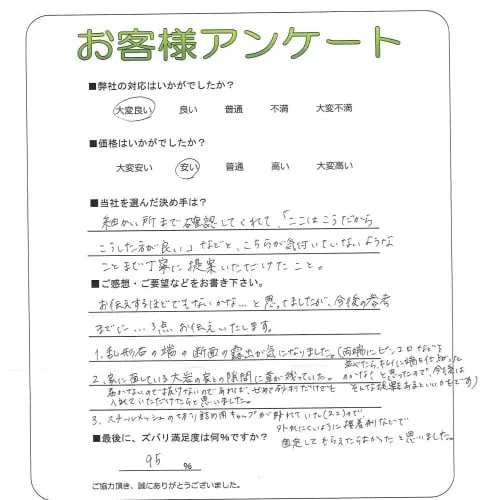 お客様アンケート
■弊社の対応はいかがでしたか？
大変良い 良い 普通 不満 大変不満
■価格はいかがでしたか？
大変安い 安い 普通 高い 大変高い
■当社を選んだ決め手は？
細かい所まで確認してくれて、「ここはこうだから
こうした方が良い」などと、こちらが気付いていないような
ことまで丁寧に提案いただけたこと。
■ご感想・ご要望などをお書き下さい。
お伝えするほどでもないかな…と思ってましたが、今後の参考
までに…3点お伝えいたします。
1. 乱形石の端の断面の露出が気になりました。(両端にピンコロなどを
並べたらキレイに端を仕切った
のかな？と思ったので、今後は
そんな提案もあるといいかもです)
2. 家に面している大岩の家との隙間に草が残っていた。
届かないので抜けないのであれば、せめて砂利だけでも
入れていただけたらと思いました。
3. スチールメッシュの切り詰め用キャップが外れていた(2コ)ので、
外れにくいように接着剤などで
固定してもらえたらよかったと思いました。
■最後に、ズバリ満足度は何％ですか？
95 ％
ご協力頂き、誠にありがとうございました。